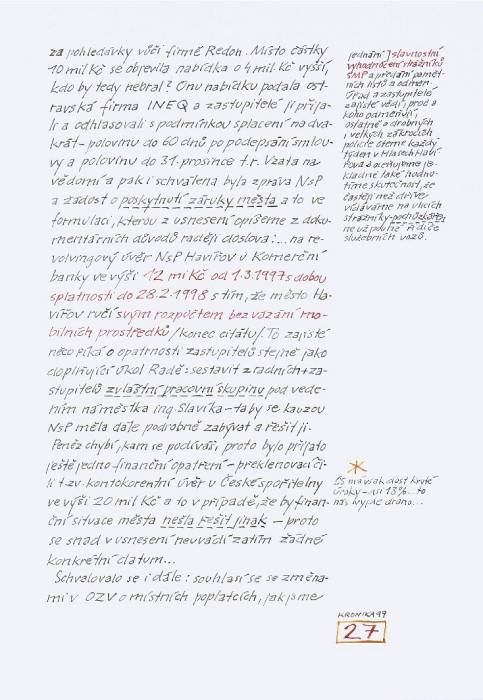 za pohledávky vůči firmě Redon. Místo částky
10 mil Kč se objevila nabídka o 4 mil. Kč vyšší,
kdo by tedy nebral? Onu nabídku podala ost-
ravská firma INEQ a zastupitelé ji přija-
li a odhlasovali s podmínkou splacení na dva-
krát - polovinu do 60 dnů po podepsání smlou-
vy a polovinu do 31. prosince t.r. Vzata na
vědomí a pak i schválena byla zpráva NsP
a žádost o poskytnutí záruky města a to ve
formulaci, kterou z usnesení opíšeme z doku-
mentárních důvodů raději doslova: ... na re-
volvingový úvěr NsP Havířov u Komerční
banky ve výši 12 mil Kč od 1.3.1997 s dobou
splatnosti do 28.2.1998 s tím, že město Ha-
vířov ručí svým rozpočtem bez vázání mo-
bilních prostředků /konec citátu/. To zajisté
něco říká o opatrnosti zastupitelů stejně jako
doplňující úkol Radě: sestavit z radních + za-
stupitelů zvláštní pracovní skupinu pod vede-
ním náměstka ing. Slavíka - ta by se kauzou
NsP měla dále podrobně zabývat a řešit ji.
Peněz chybí, kam se podíváš, proto bylo přijato
ještě jedno finanční opatření - překlenovací či-
li t.zv. kontokorentní úvěr u České spořitelny
ve výši 20 mil Kč a to v případě, že by finan-
ční situace města nešla řešit jinak - proto
se snad v usnesení neuvádí zatím žádné
konkrétní datum...
Schvalovalo se i dále: souhlasí se se změna-
mi v OZV o místních poplatcích, jak jsme
jednání) slavnostní
vyhodnocení strážníků
ŠMP a předání pamět-
ních listů a odměn.
Úřad a zastupitelé
zajisté vědí, proč a
koho odměňují,
ostatně o drobných
i velkých zákrocích
policie čteme každý
týden v Hlasech Haví-
řova a oceňujeme je-
kladně také hodno-
tíme skutečnost, že
častěji než dříve
vídáváme na ulicích
strážníky - pochůzkáře,
ne už pouhé řidiče
služebních vozů.
ČS má však dost kruté
úroky - asi 13% ... to
nás vyjde draho...
KRONIKA 97
27